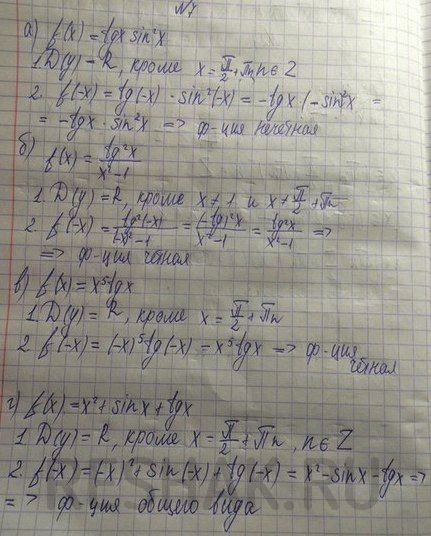 №7
а) f(x) = tgx sin²x
1. D(y) - R, кроме x = π/2 + πn, n ∈ Z
2. f(-x) = tg(-x) · sin²(-x) = -tgx (-sin²x =
= -tgx · sin²x => ф-ция нечётная
б) f(x) = tg²x/x²-1
1. D(y) = R, кроме x ≠ 1 и x ≠ π/2 + πn
2. f(-x) = tg²(-x)/(-x)²-1 = (-tg)²x/x²-1 = tg²x/x²-1 =>
=> ф-ция чётная
в) f(x) = x⁵tgx
1. D(y) = R, кроме x = π/2 + πn
2. f(-x) = (-x)⁵ · tg(-x) = x⁵tgx => ф-ция
чётная
г) f(x) = x² + sinx + tgx
1. D(y) = R, кроме x = π/2 + πn, n ∈ Z
2. f(-x) = (-x)² + sin(-x) + tg(-x) = x² - sinx - tgx =>
=> ф-ция общего вида